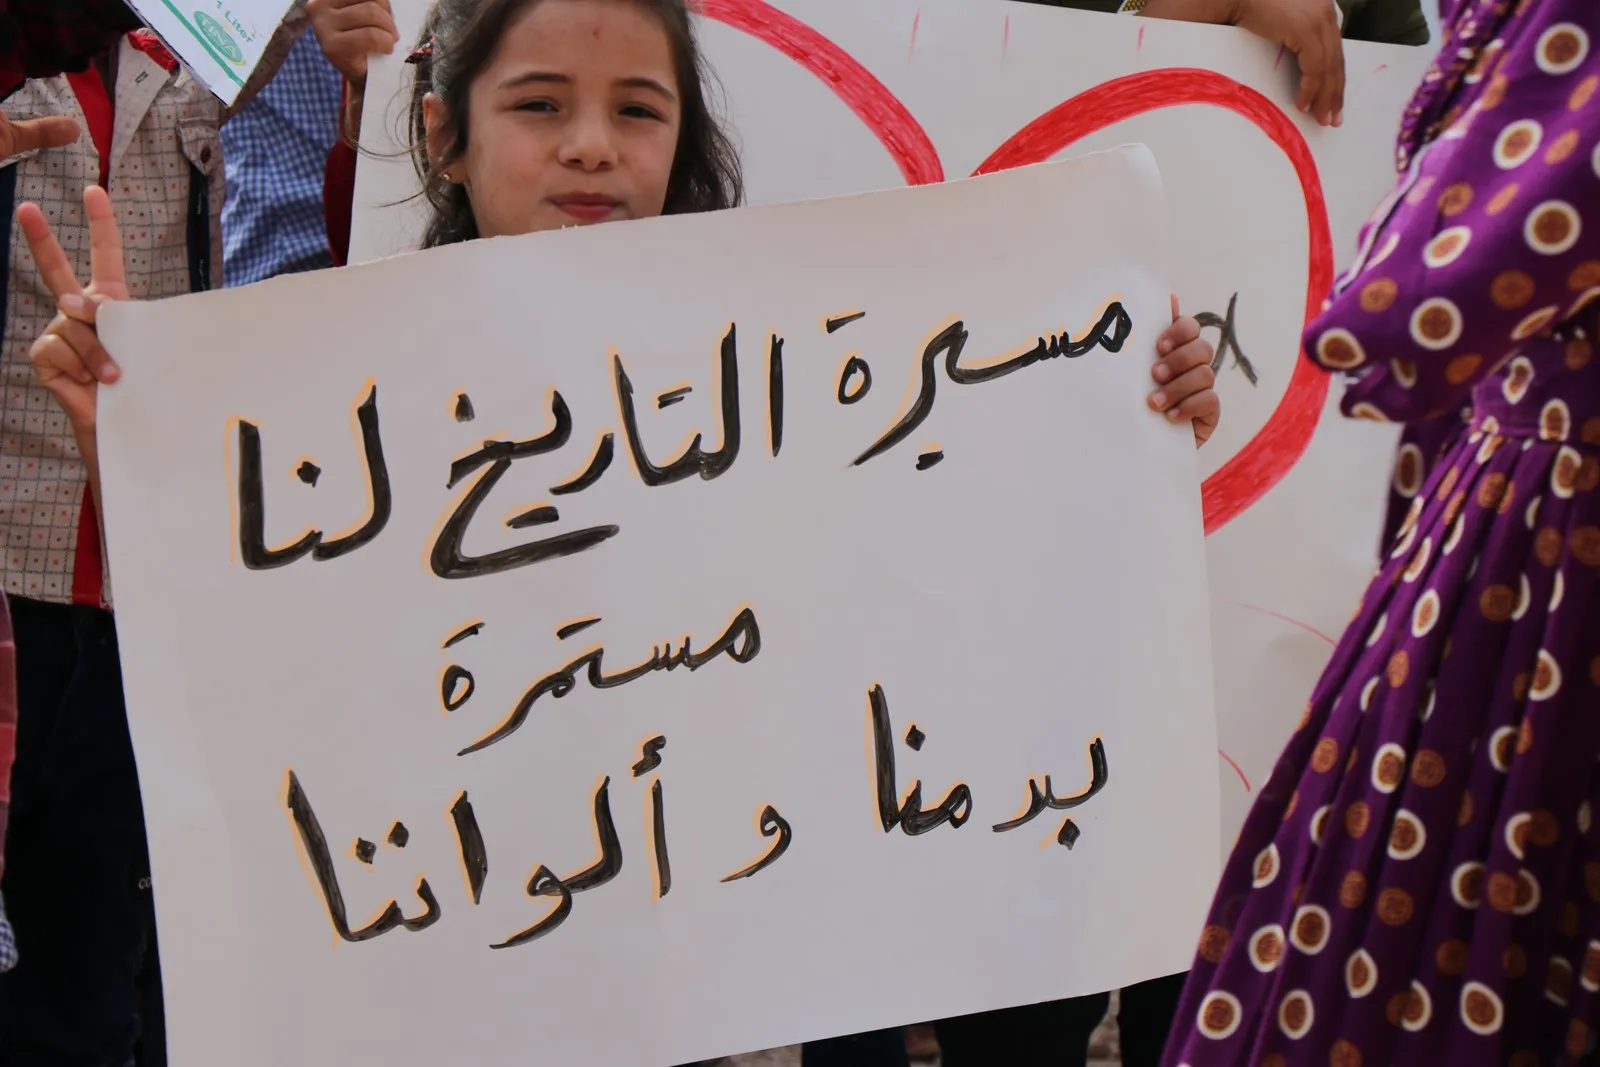 1 Liter
TINA
مسيرة التاريخ لنا
مستمرة
بدمنا و ألواننا